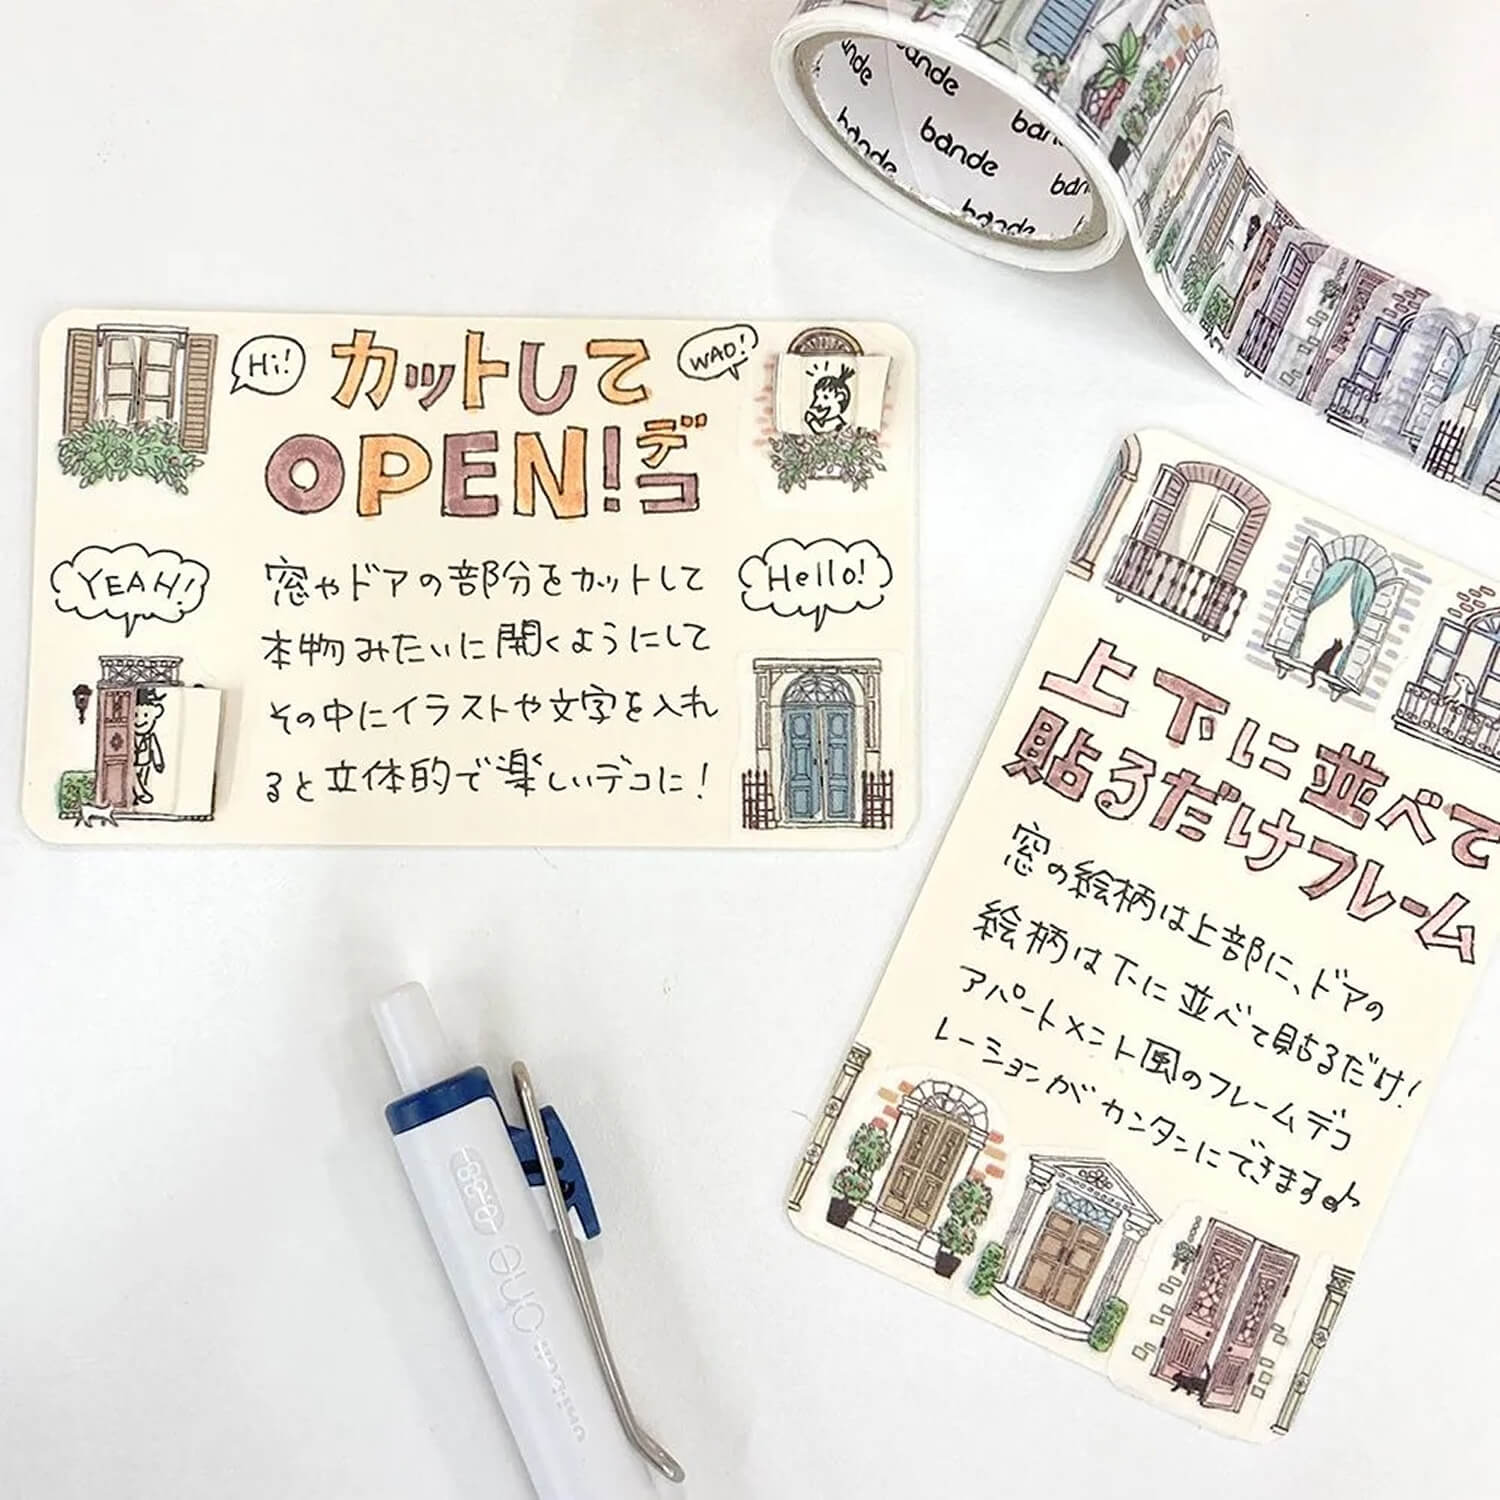 ande
ande
bande
ban
ande
bande
ban
bande
Hi!
カットして
WAO!
OPEN!デコ
YEAH!
Hello!
窓やドアの部分をカットして
本物みたいに開くようにして
その中にイラストや文字を入れ
ると立体的で楽しいデコに!
上下に並べて
貼るだけフレーム
窓の絵柄は上部に、ドアの
絵柄は下に並べて貼るだけ!
アパートメント風のフレームデコ
レーションがカンタンにできます♪
uni-ball one